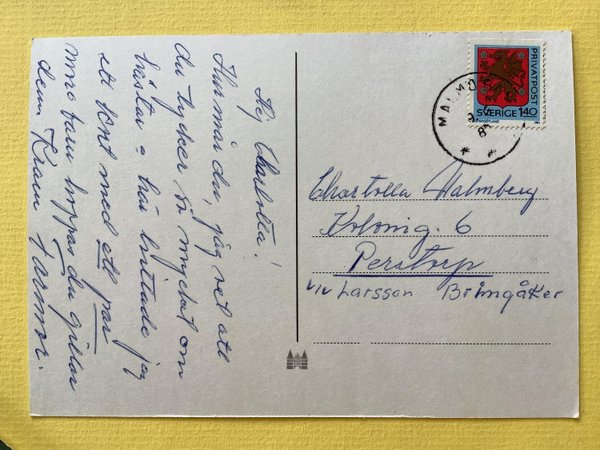 Hej Charlotta!
Hur mår du, jag vet att
du tycker så mycket om
hästar = här hittade jag
ett kort med ett par
mro farm hoppas du gillar
dem Kram Farmor.
PRIVATPOST
SVERIGE 140
MALMÖ
Charlotta Malmberg
Kolonig. 6
Perstorp
Larsson Bringåker